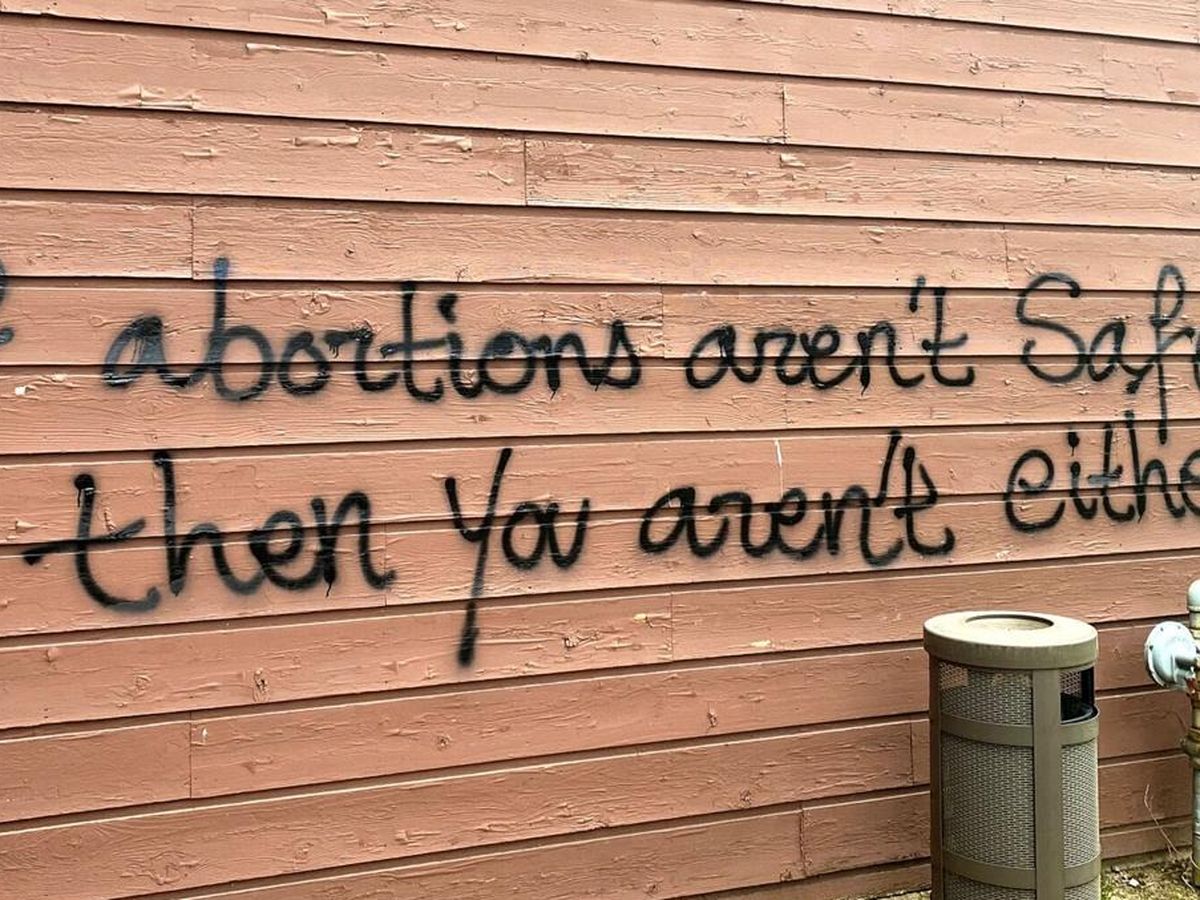 abortions aren't Safe
then You aren't eithe